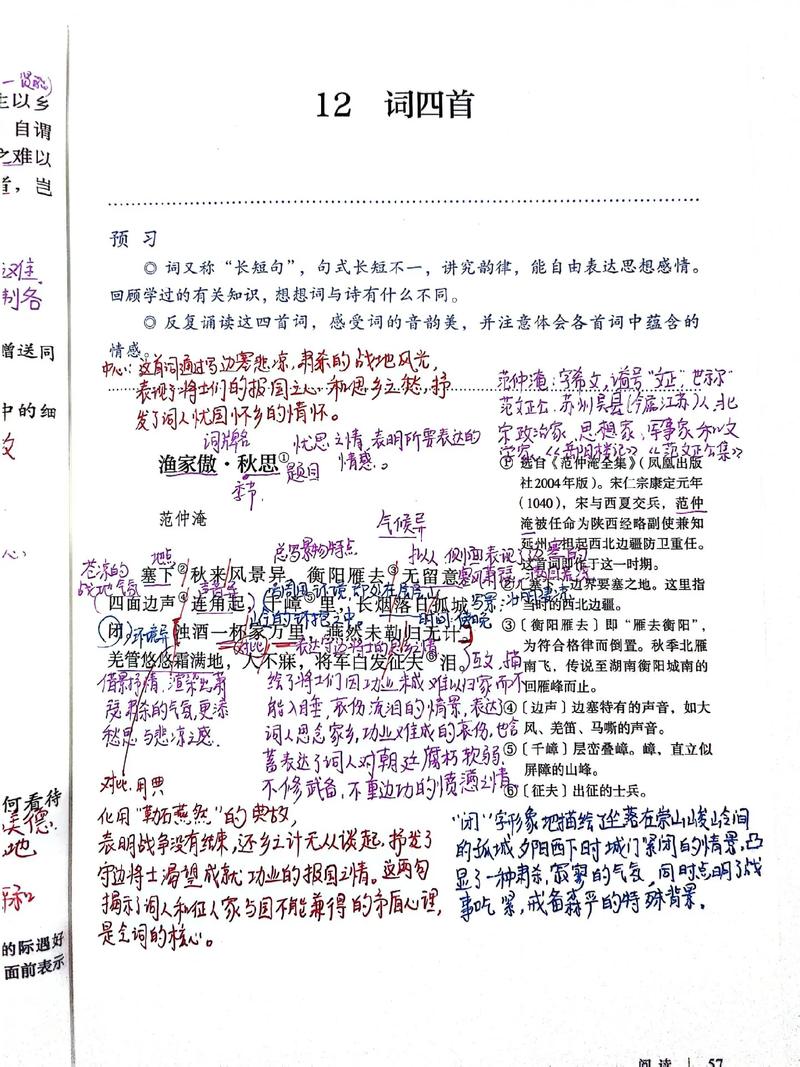 主以乡
自谓
之难以
首，岂
难
制各
赠送同
中的细
文
心
何看待
美德
地
的际遇好
面前表示
12 词四首
预 习
◎ 词又称“长短句”，句式长短不一，讲究韵律，能自由表达思想感情。
回顾学过的有关知识，想想词与诗有什么不同。
◎ 反复诵读这四首词，感受词的音韵美，并注意体会各首词中蕴含的
情感。
中心：这首词通过写边塞悲凉，肃杀的战地风光，
表现了将士们的报国之心和思乡之愁，抒
发了词人忧国怀乡的情怀。
范仲淹：字希文，谥号“文正”，世称
范文正公，苏州吴县（今属江苏）人，北
宋政治家、思想家、军事家和文
学家。《岳阳楼记》《范文正公集》
词牌名 忧思之情，表明所要表达的
情感。
渔家傲·秋思①
题目
季节
范仲淹
气候异
苍凉的
战地气氛
地点
总写景物特点
塞下②秋来风景异，衡阳雁去③无留意。
四面边声④连角起，千嶂⑤里，长烟落日孤城
闭。
环境异
浊酒一杯家万里，燕然未勒归无计。
对比
羌管悠悠霜满地，人不寐，将军白发征夫⑥泪。
借景抒情，渲染出萧
瑟肃杀的气氛，更添
愁思与悲凉之感。
互文，描
绘了将士们因功业未成难以归家而不
能入睡，哀伤流泪的情景，表达
词人思念家乡，功业难成的哀伤，也含
蓄表达了词人对朝廷腐朽软弱，
不修武备，不重边功的愤懑之情
① 选自《范仲淹全集》（凤凰出版
社2004年版）。宋仁宗康定元年
（1040），宋与西夏交兵，范仲
淹被任命为陕西经略副使兼知
延州，担起西北边疆防卫重任。
这首词即作于这一时期。
② 〔塞下〕边界要塞之地。这里指
当时的西北边疆。
③〔衡阳雁去〕即“雁去衡阳”，
为符合格律而倒置。秋季北雁
南飞，传说至湖南衡阳城南的
回雁峰而止。
④〔边声〕边塞特有的声音，如大
风、羌笛、马嘶的声音。
⑤〔千嶂〕层峦叠嶂。嶂，直立似
屏障的山峰。
⑥〔征夫〕出征的士兵。
对比，用典
化用“勒石燕然”的典故，
表明战争没有结束，还乡之计无从谈起，抒发了
守边将士渴望成就功业的报国之情。这两句
揭示了词人和征人家与国不能兼得的矛盾心理，
是全词的核心。
“闭”字形象地描绘了坐落在崇山峻岭间
的孤城夕阳西下时城门紧闭的情景，凸
显了一种肃杀，寂寥的气氛，同时点明了战
事吃紧，戒备森严的特殊背景。
阅读 57